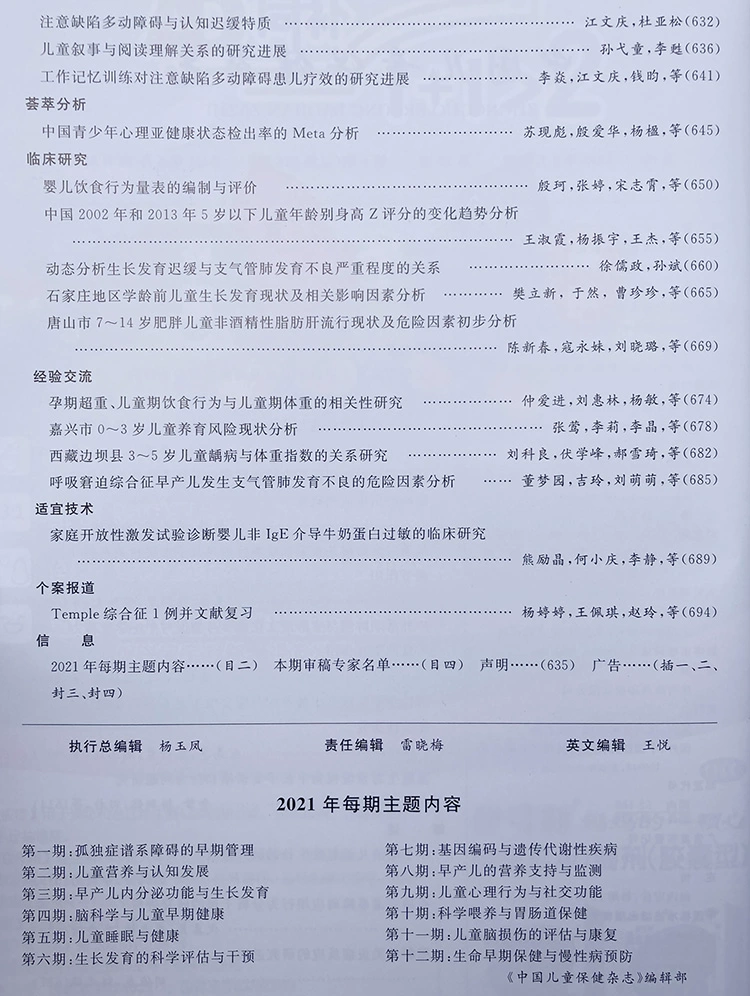 注意缺陷多动障碍与认知迟缓特质 ………………………………… 江文庆,杜亚松(632)
儿童叙事与阅读理解关系的研究进展 ………………………………… 孙弋童,李甦(636)
工作记忆训练对注意缺陷多动障碍患儿疗效的研究进展 ……………… 李焱,江文庆,钱昀,等(641)
荟萃分析
中国青少年心理亚健康状态检出率的 Meta 分析 ……………… 苏现彪,殷爱华,杨楹,等(645)
临床研究
婴儿饮食行为量表的编制与评价 ……………………………… 殷珂,张婷,宋志霄,等(650)
中国 2002 年和 2013 年 5 岁以下儿童年龄别身高 Z 评分的变化趋势分析
……………………………………………………… 王淑霞,杨振宇,王杰,等(655)
动态分析生长发育迟缓与支气管肺发育不良严重程度的关系 ……………… 徐儒政,孙斌(660)
石家庄地区学龄前儿童生长发育现状及相关影响因素分析 ………… 樊立新,于然,曹珍珍,等(665)
唐山市 7～14 岁肥胖儿童非酒精性脂肪肝流行现状及危险因素初步分析
……………………………………………………… 陈新春,寇永妹,刘晓璐,等(669)
经验交流
孕期超重、儿童期饮食行为与儿童期体重的相关性研究 …………… 仲爱进,刘惠林,杨敏,等(674)
嘉兴市 0～3 岁儿童养育风险现状分析 …………………………… 张莺,李莉,李晶,等(678)
西藏边坝县 3～5 岁儿童龋病与体重指数的关系研究 …………… 刘科良,伏学峰,郝雪琦,等(682)
呼吸窘迫综合征早产儿发生支气管肺发育不良的危险因素分析 …… 董梦园,吉玲,刘萌萌,等(685)
适宜技术
家庭开放性激发试验诊断婴儿非 IgE 介导牛奶蛋白过敏的临床研究
……………………………………………………… 熊励晶,何小庆,李静,等(689)
个案报道
Temple 综合征 1 例并文献复习 ……………………………… 杨婷婷,王佩琪,赵玲,等(694)
信　息
2021 年每期主题内容……(目二)　本期审稿专家名单……(目四)　声明……(635)　广告……(插一、二、
封三、封四)
执行总编辑　杨玉凤　责任编辑　雷晓梅　英文编辑　王悦
2021 年每期主题内容
第一期:孤独症谱系障碍的早期管理
第二期:儿童营养与认知发展
第三期:早产儿内分泌功能与生长发育
第四期:脑科学与儿童早期健康
第五期:儿童睡眠与健康
第六期:生长发育的科学评估与干预
第七期:基因编码与遗传代谢性疾病
第八期:早产儿的营养支持与监测
第九期:儿童心理行为与社交功能
第十期:科学喂养与胃肠道保健
第十一期:儿童脑损伤的评估与康复
第十二期:生命早期保健与慢性病预防
《中国儿童保健杂志》编辑部